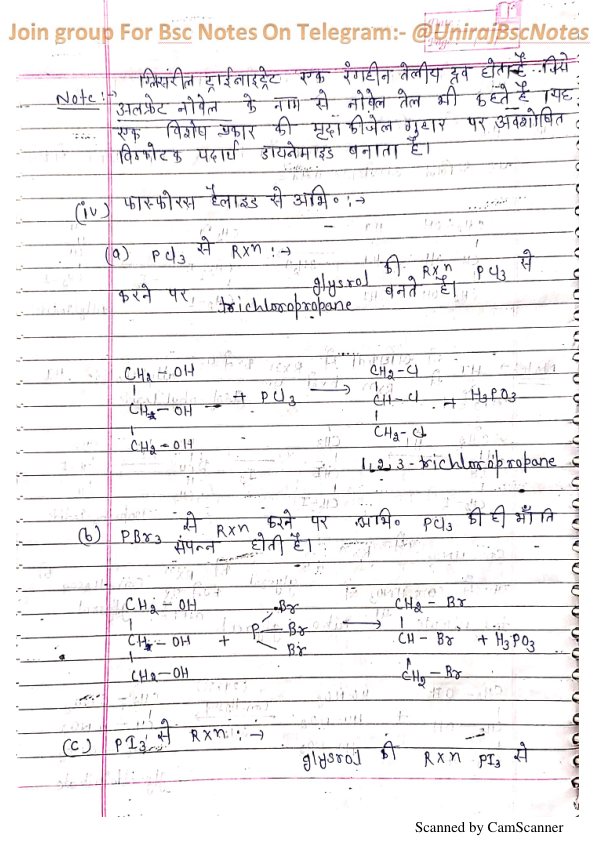 Join group For Bsc Notes On Telegram:- @UnirajBscNotes
ग्लिसरील ट्राईनाइट्रेट एक रंगहीन तैलीय द्रव होता है जिसे
Note:→ अल्फ्रेट नोबेल के नाम से नोबेल तेल भी कहते है यह
एक विशेष प्रकार की मृदा कीजेल गुहार पर अवशोषित
विस्फोटक पदार्थ डायनेमाइड बनाता है।
(iv) फास्फोरस हैलाइड से अभि॰ :→
(a) PCl3 से Rxn :→
glysrol की Rxn PCl3 से
करने पर trichloropropane बनते है।
CH2-OH CH2-Cl
CH-OH + PCl3 → CH-Cl + H3PO3
CH2-OH CH2-Cl
1,2,3-trichloropropane
(b) PBr3 से Rxn करने पर अभि॰ PCl3 की ही भाँति
संपन्न होती है।
CH2-OH Br CH2-Br
CH-OH + P-Br → CH-Br + H3PO3
CH2-OH Br CH2-Br
(c) PI3 से Rxn :→
glysrol की Rxn PI3 से
Scanned by CamScanner